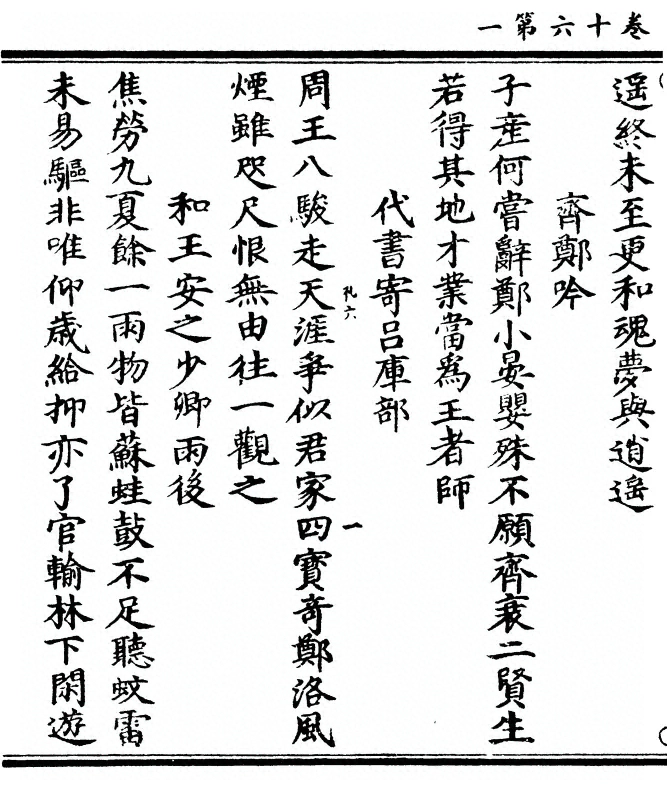 卷十六第一
遥終未至更和魂夢與逍遥
齊鄭吟
子産何嘗辭鄭小晏嬰殊不願齊衰二賢生
若得其地才業當爲王者師
代書寄吕庫部
周王八駿走天涯爭似君家四寶奇鄭洛風
煙雖咫尺恨無由往一觀之
和王安之少卿雨後
焦勞九夏餘一雨物皆蘇蛙鼓不足聽蚊雷
未易驅非唯仰歳給抑亦了官輸林下閑遊